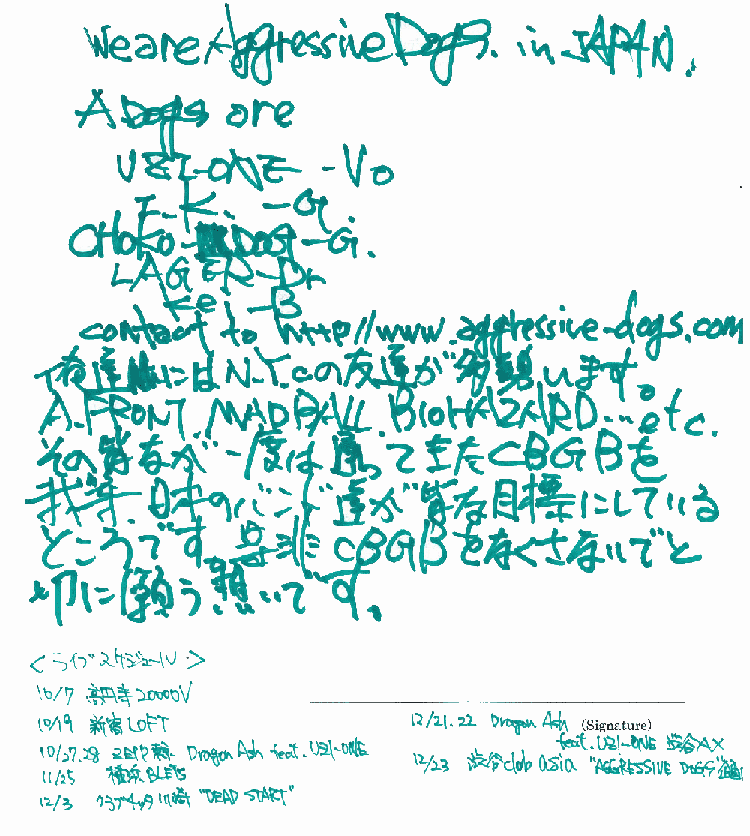 We are Aggressive Dogs. in JAPAN.
A Dogs are
UZI-ONE -Vo
I.K. -G
CHOKO-DOG-G.
LAGER-Dr
Kei -B
contact to http//www.aggressive-dogs.com
俺達にはN.Y.cの友達が多勢います。
A.FRONT. MADBALL. BIOHAZARD...etc.
その皆なが一度は通って来たCBGBを
我等、日本のバンド達が皆な目標にしている
ところです。是非CBGBをなくさないでと
切に願う想いです。
<ライブスケジュール>
10/7 高円寺20000V
10/19 新宿LOFT
10/27.28 ZEPP Dragon Ash feat. UZI-ONE
11/25 横浜BLITZ
12/3 クラブチッタ川崎 "DEAD START"
12/21.22 Dragon Ash (Signature)
feat. UZI-ONE 渋谷AX
12/23 渋谷club asia "AGGRESSIVE DOGS"企画